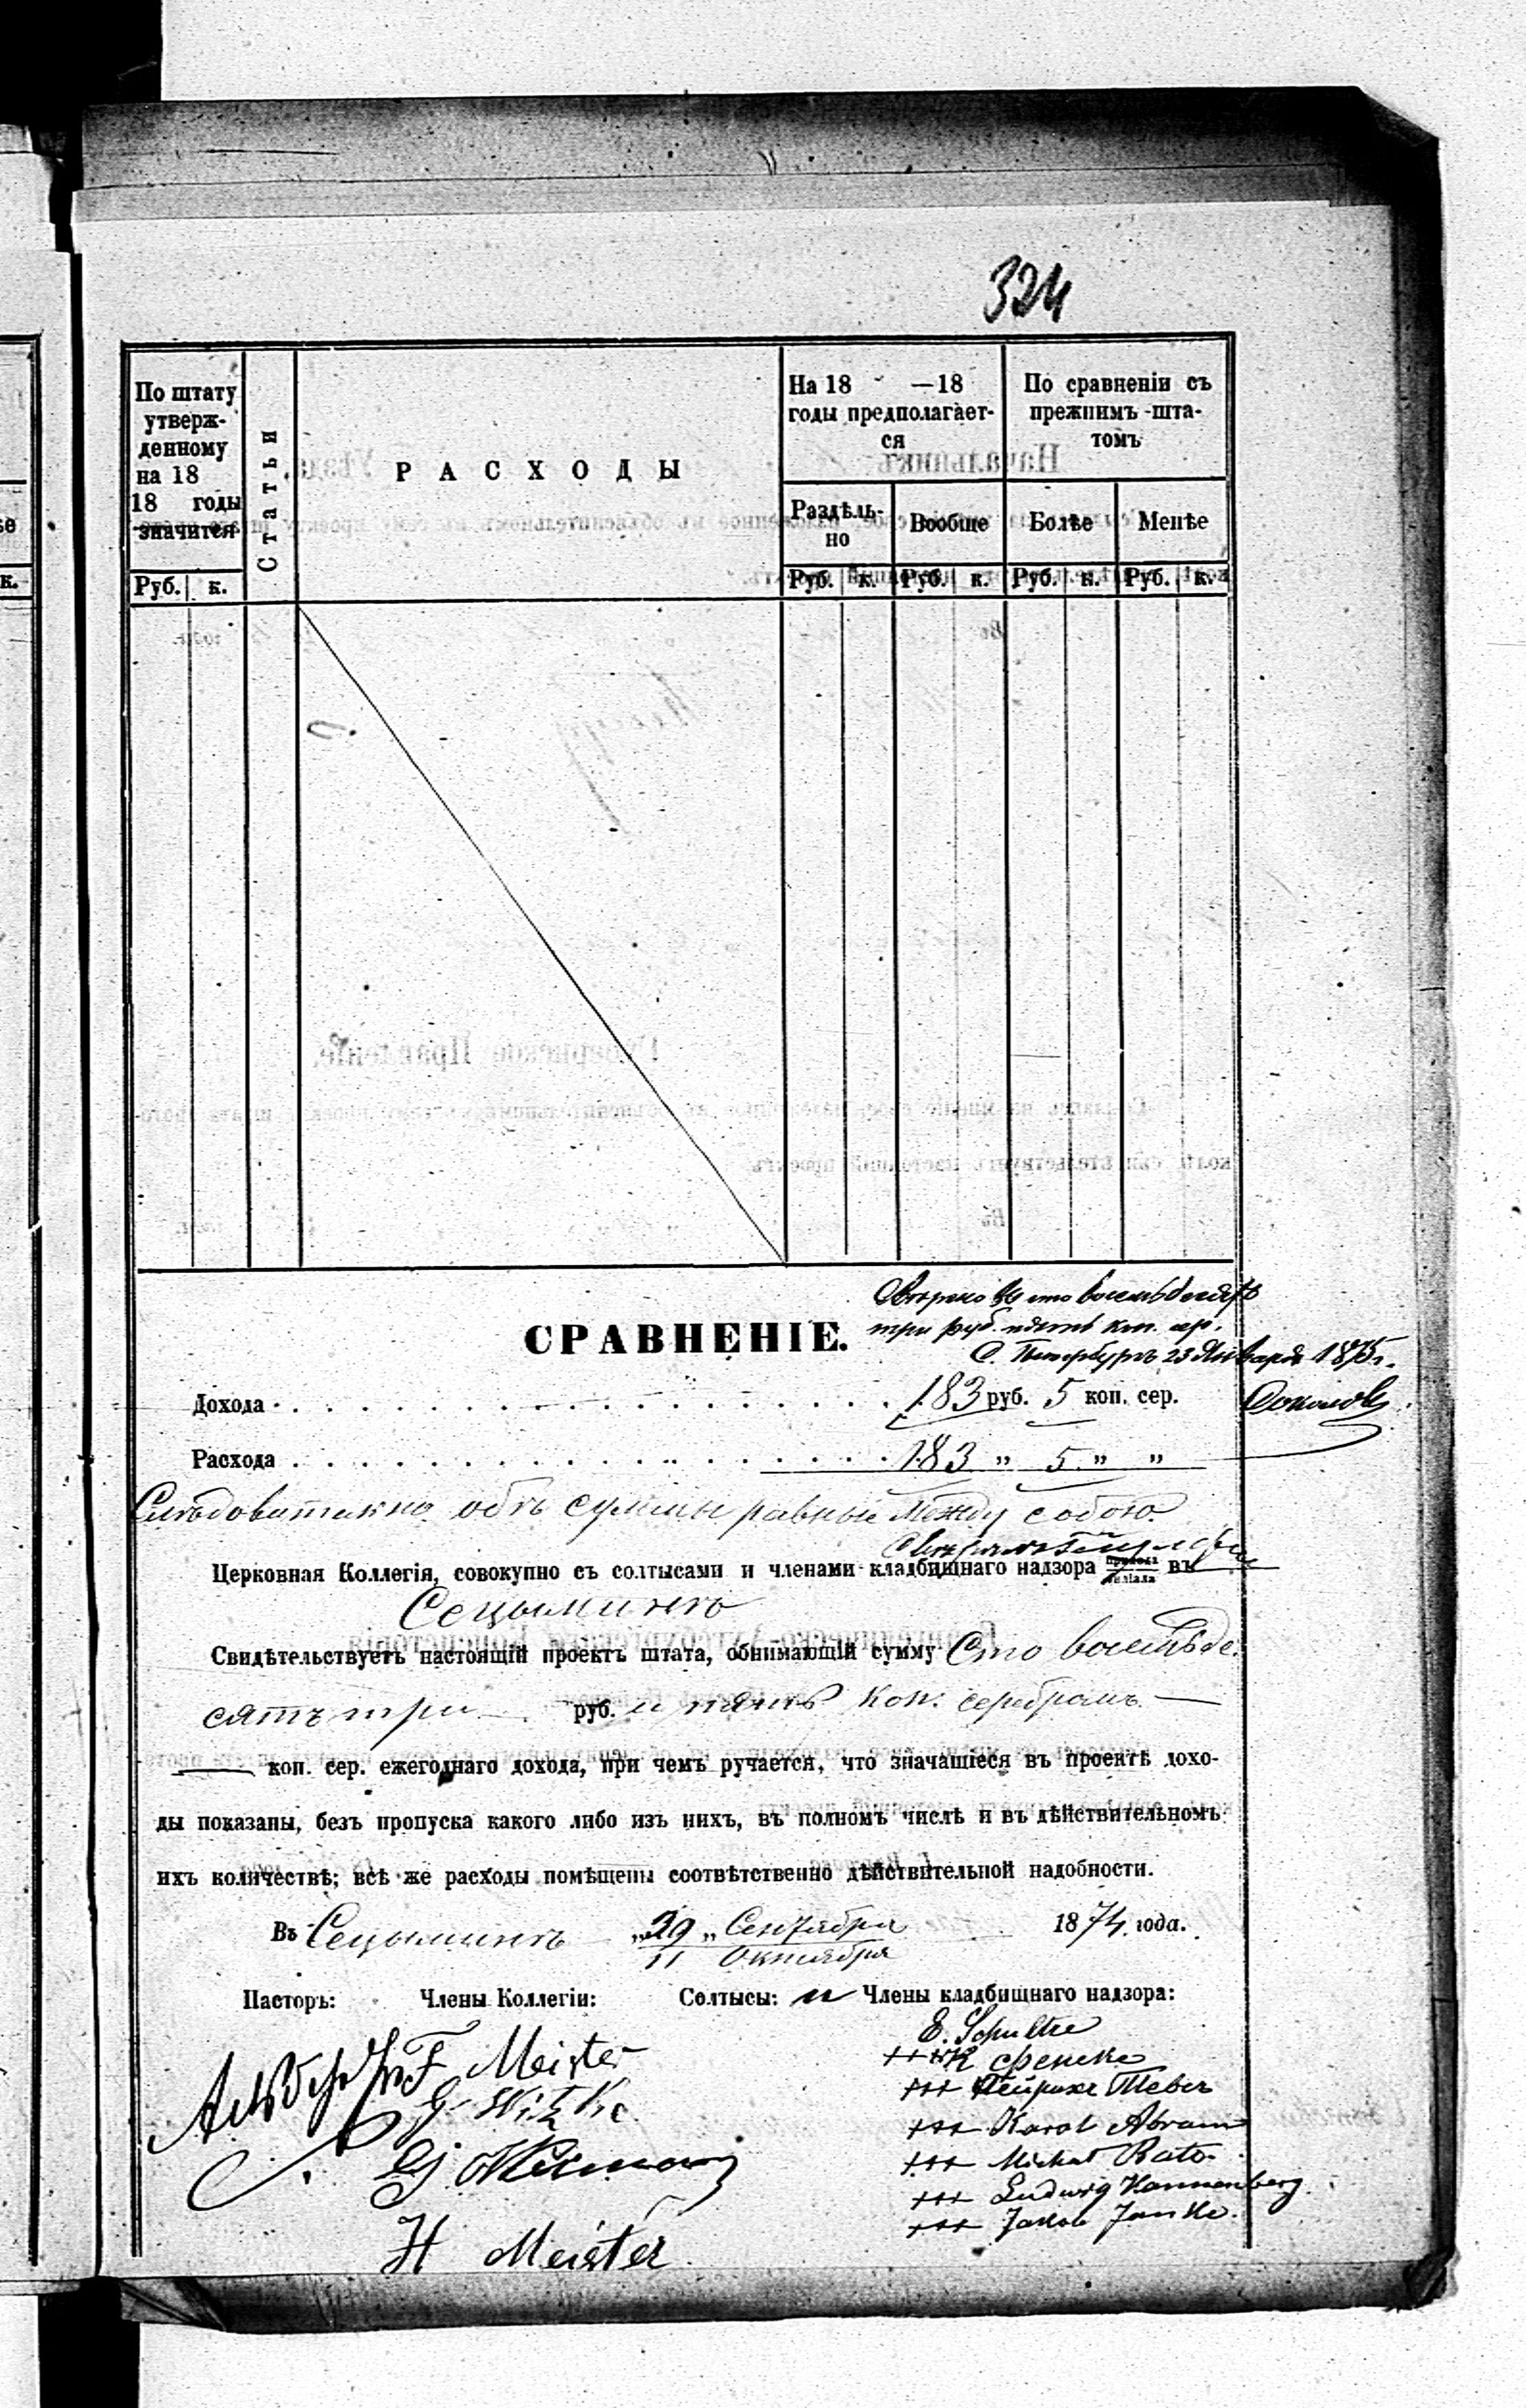 324
По штату утверж-денному на 18
18 годы значится
Статьи
РАСХОДЫ
На 18 —18
годы предполагает-
ся
По сравненіи съ
прежнимъ шта-
томъ
Раздѣль-
но
Вообще
Болѣе
Менѣе
Руб. к.
Руб. к. Руб. к. Руб. к. Руб. к.
сто восемьдесятъ
три руб. пять коп. сер.
С. Петербургъ 23 Января 1875 г.
СРАВНЕНІЕ.
Дохода 183 руб. 5 коп. сер.
Соколовъ
Расхода 183 „ 5 „ „
Слѣдовательно обѣ суммы равные между собою
Церковная Коллегія, совокупно съ солтысами и членами кладбищнаго надзора прихода филіала въ
Сецыминѣ
Свидѣтельствуетъ настоящій проектъ штата, обнимающій сумму Сто восемьде-
сятъ три руб. и пять коп. серебромъ
коп. сер. ежегоднаго дохода, при чемъ ручается, что значащіеся въ проектѣ дохо-
ды показаны, безъ пропуска какого либо изъ нихъ, въ полномъ числѣ и въ дѣйствительномъ
ихъ количествѣ; всѣ же расходы помѣщены соотвѣтственно дѣйствительной надобности.
Въ Сецыминѣ „29„ Сентября 1874 года.
11 Октября
Пасторъ: Члены Коллегіи: Солтысы: и Члены кладбищнаго надзора:
E. Schultze
F Meister
+++ К Фенске
+++ Гейрихъ Теберъ
G. Witzke
+++ Karol Abram
+++ Michal Rato
+++ Ludwig Hannenberg
+++ Jakob Janke
H Meister